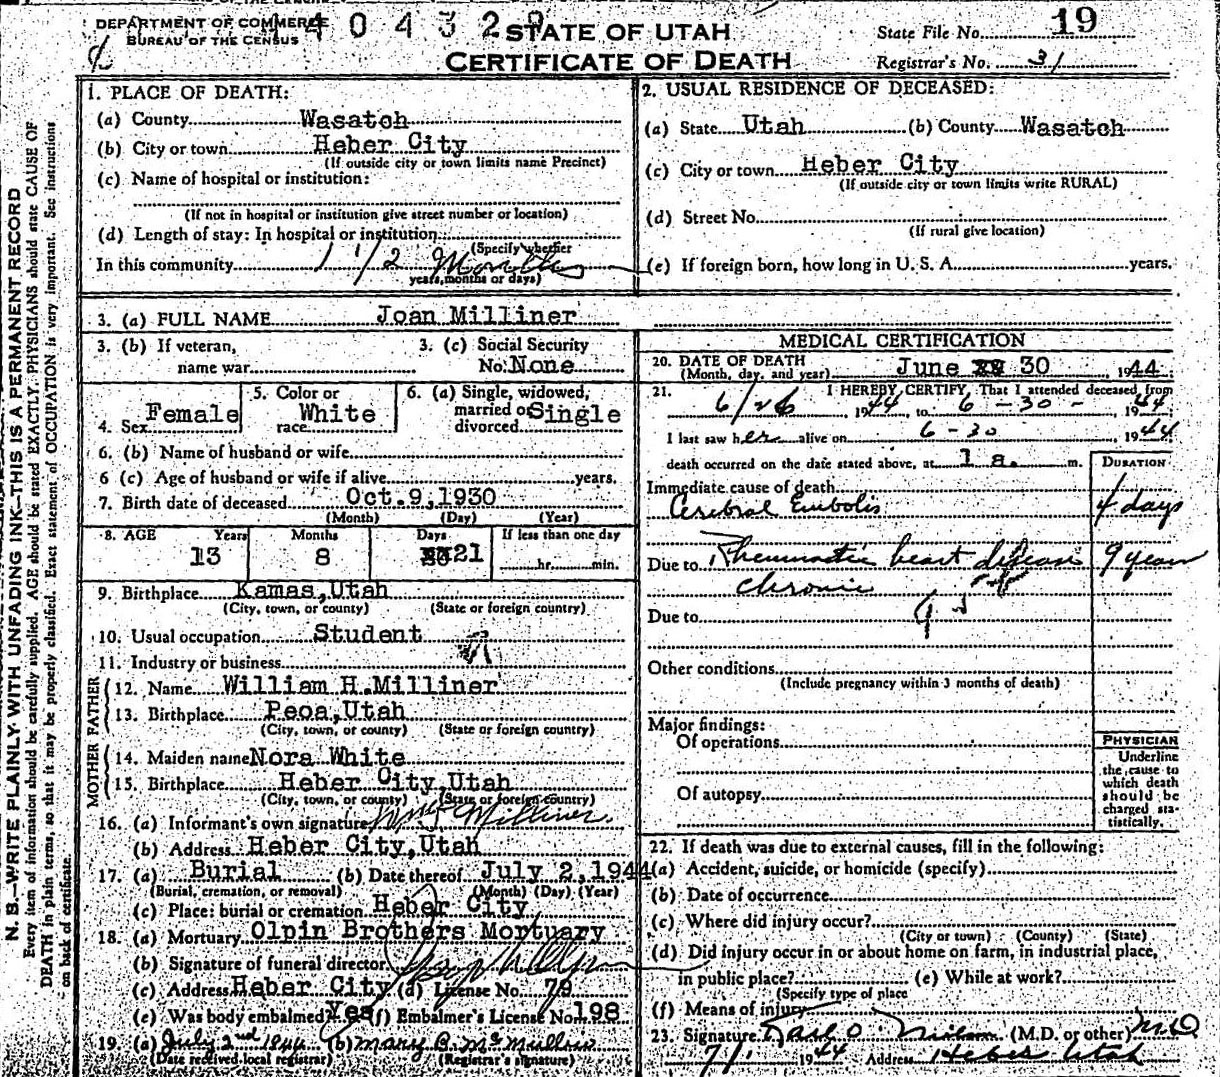 DEPARTMENT OF COMMERCE
BUREAU OF THE CENSUS
STATE OF UTAH
CERTIFICATE OF DEATH
State File No. 19
Registrar's No. 31
N. B.—WRITE PLAINLY WITH UNFADING INK—THIS IS A PERMANENT RECORD
Every item of information should be carefully supplied. AGE should be stated EXACTLY. PHYSICIANS should state CAUSE OF
DEATH in plain terms, so that it may be properly classified. Exact statement of OCCUPATION is very important. See instructions
on back of certificate.
1. PLACE OF DEATH:
(a) County Wasatch
(b) City or town Heber City
(If outside city or town limits name Precinct)
(c) Name of hospital or institution:
(If not in hospital or institution give street number or location)
(d) Length of stay: In hospital or institution
(Specify whether
In this community 1 1/2 Months
years, months or days)
2. USUAL RESIDENCE OF DECEASED:
(a) State Utah (b) County Wasatch
(c) City or town Heber City
(If outside city or town limits write RURAL)
(d) Street No.
(If rural give location)
(e) If foreign born, how long in U. S. A. years.
3. (a) FULL NAME Joan Milliner
3. (b) If veteran, name war
3. (c) Social Security No. None
4. Sex Female
5. Color or race White
6. (a) Single, widowed, married or divorced Single
6. (b) Name of husband or wife
6 (c) Age of husband or wife if alive years.
7. Birth date of deceased Oct. 9, 1930
(Month) (Day) (Year)
8. AGE Years Months Days If less than one day
13 8 21 hr. min.
9. Birthplace Kamas, Utah
(City, town, or county) (State or foreign country)
10. Usual occupation Student
11. Industry or business
FATHER
12. Name William H. Milliner
13. Birthplace Peoa, Utah
(City, town, or county) (State or foreign country)
MOTHER
14. Maiden name Nora White
15. Birthplace Heber City, Utah
(City, town, or county) (State or foreign country)
16. (a) Informant's own signature Milliner.
(b) Address Heber City, Utah
17. (a) Burial (b) Date thereof July 2, 1944
(Burial, cremation, or removal) (Month) (Day) (Year)
(c) Place: burial or cremation Heber City
18. (a) Mortuary Olpin Brothers Mortuary
(b) Signature of funeral director
(c) Address Heber City (d) License No. 79
(e) Was body embalmed? Yes (f) Embalmer's License No. 198
19. (a) July 2nd 1944 (b) Mary B. McMullin
(Date received local registrar) (Registrar's signature)
MEDICAL CERTIFICATION
20. DATE OF DEATH
(Month, day, and year) June 30, 1944
21. I HEREBY CERTIFY, That I attended deceased from
6/26, 1944, to 6-30-, 1944
I last saw her alive on 6-30, 1944
death occurred on the date stated above, at 1 a. m.
DURATION
Immediate cause of death
Cerebral Embolis 4 days
Due to Rheumatic heart disease 9 year
chronic
Due to
Other conditions
(Include pregnancy within 3 months of death)
Major findings:
Of operations
Of autopsy
PHYSICIAN
Underline
the cause to
which death
should be
charged sta-
tistically.
22. If death was due to external causes, fill in the following:
(a) Accident, suicide, or homicide (specify)
(b) Date of occurrence
(c) Where did injury occur?
(City or town) (County) (State)
(d) Did injury occur in or about home on farm, in industrial place,
in public place? (e) While at work?
(Specify type of place
(f) Means of injury
23. Signature (M.D. or other) M.D
7/1 1944 Address Heber Utah